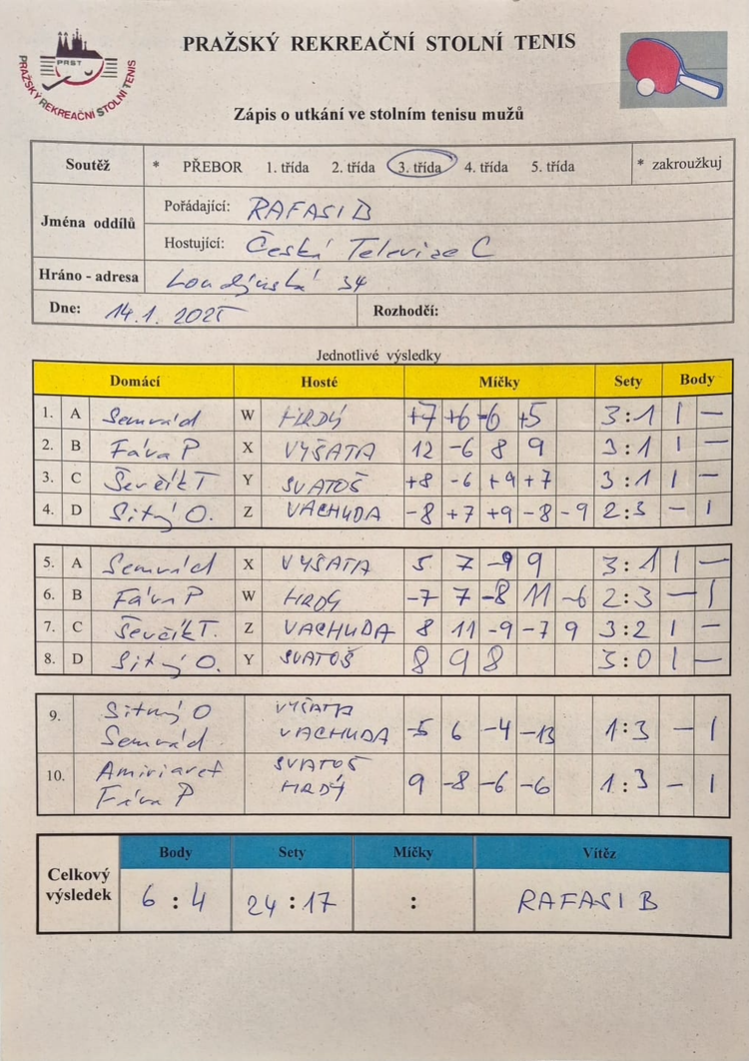 PRAŽSKÝ REKREAČNÍ STOLNÍ TENIS
PRST
PRAŽSKÝ REKREAČNÍ STOLNÍ TENIS
Zápis o utkání ve stolním tenisu mužů
Soutěž * PŘEBOR 1. třída 2. třída 3. třída 4. třída 5. třída * zakroužkuj
Jména oddílů
Pořádající: RAFASI B
Hostující: Česká Televize C
Hráno - adresa 34
Dne: 14.1. 2025 Rozhodčí:
Jednotlivé výsledky
Domácí Hosté Míčky Sety Body
1. A Semrád W HRDÝ +7 +6 -6 +5 3:1 1 -
2. B Fáva P X VYŠATA 12 -6 8 9 3:1 1 -
3. C Ševčík T Y SVATOŠ +8 -6 +9 +7 3:1 1 -
4. D Sitný O. Z VACHUDA -8 +7 +9 -8 -9 2:3 - 1
5. A Semrád X VYŠATA 5 7 -9 9 3:1 1 -
6. B Fáva P W HRDÝ -7 7 -8 11 -6 2:3 - 1
7. C Ševčík T. Z VACHUDA 8 11 -9 -7 9 3:2 1 -
8. D Sitný O. Y SVATOŠ 8 9 8 3:0 1 -
9. Sitný O VYŠATA
Semrád VACHUDA -5 6 -4 -13 1:3 - 1
10. Amiriaref SVATOŠ
Fáva P HRDÝ 9 -8 -6 -6 1:3 - 1
Celkový výsledek
Body Sety Míčky Vítěz
6 : 4 24 : 17 : RAFASI B